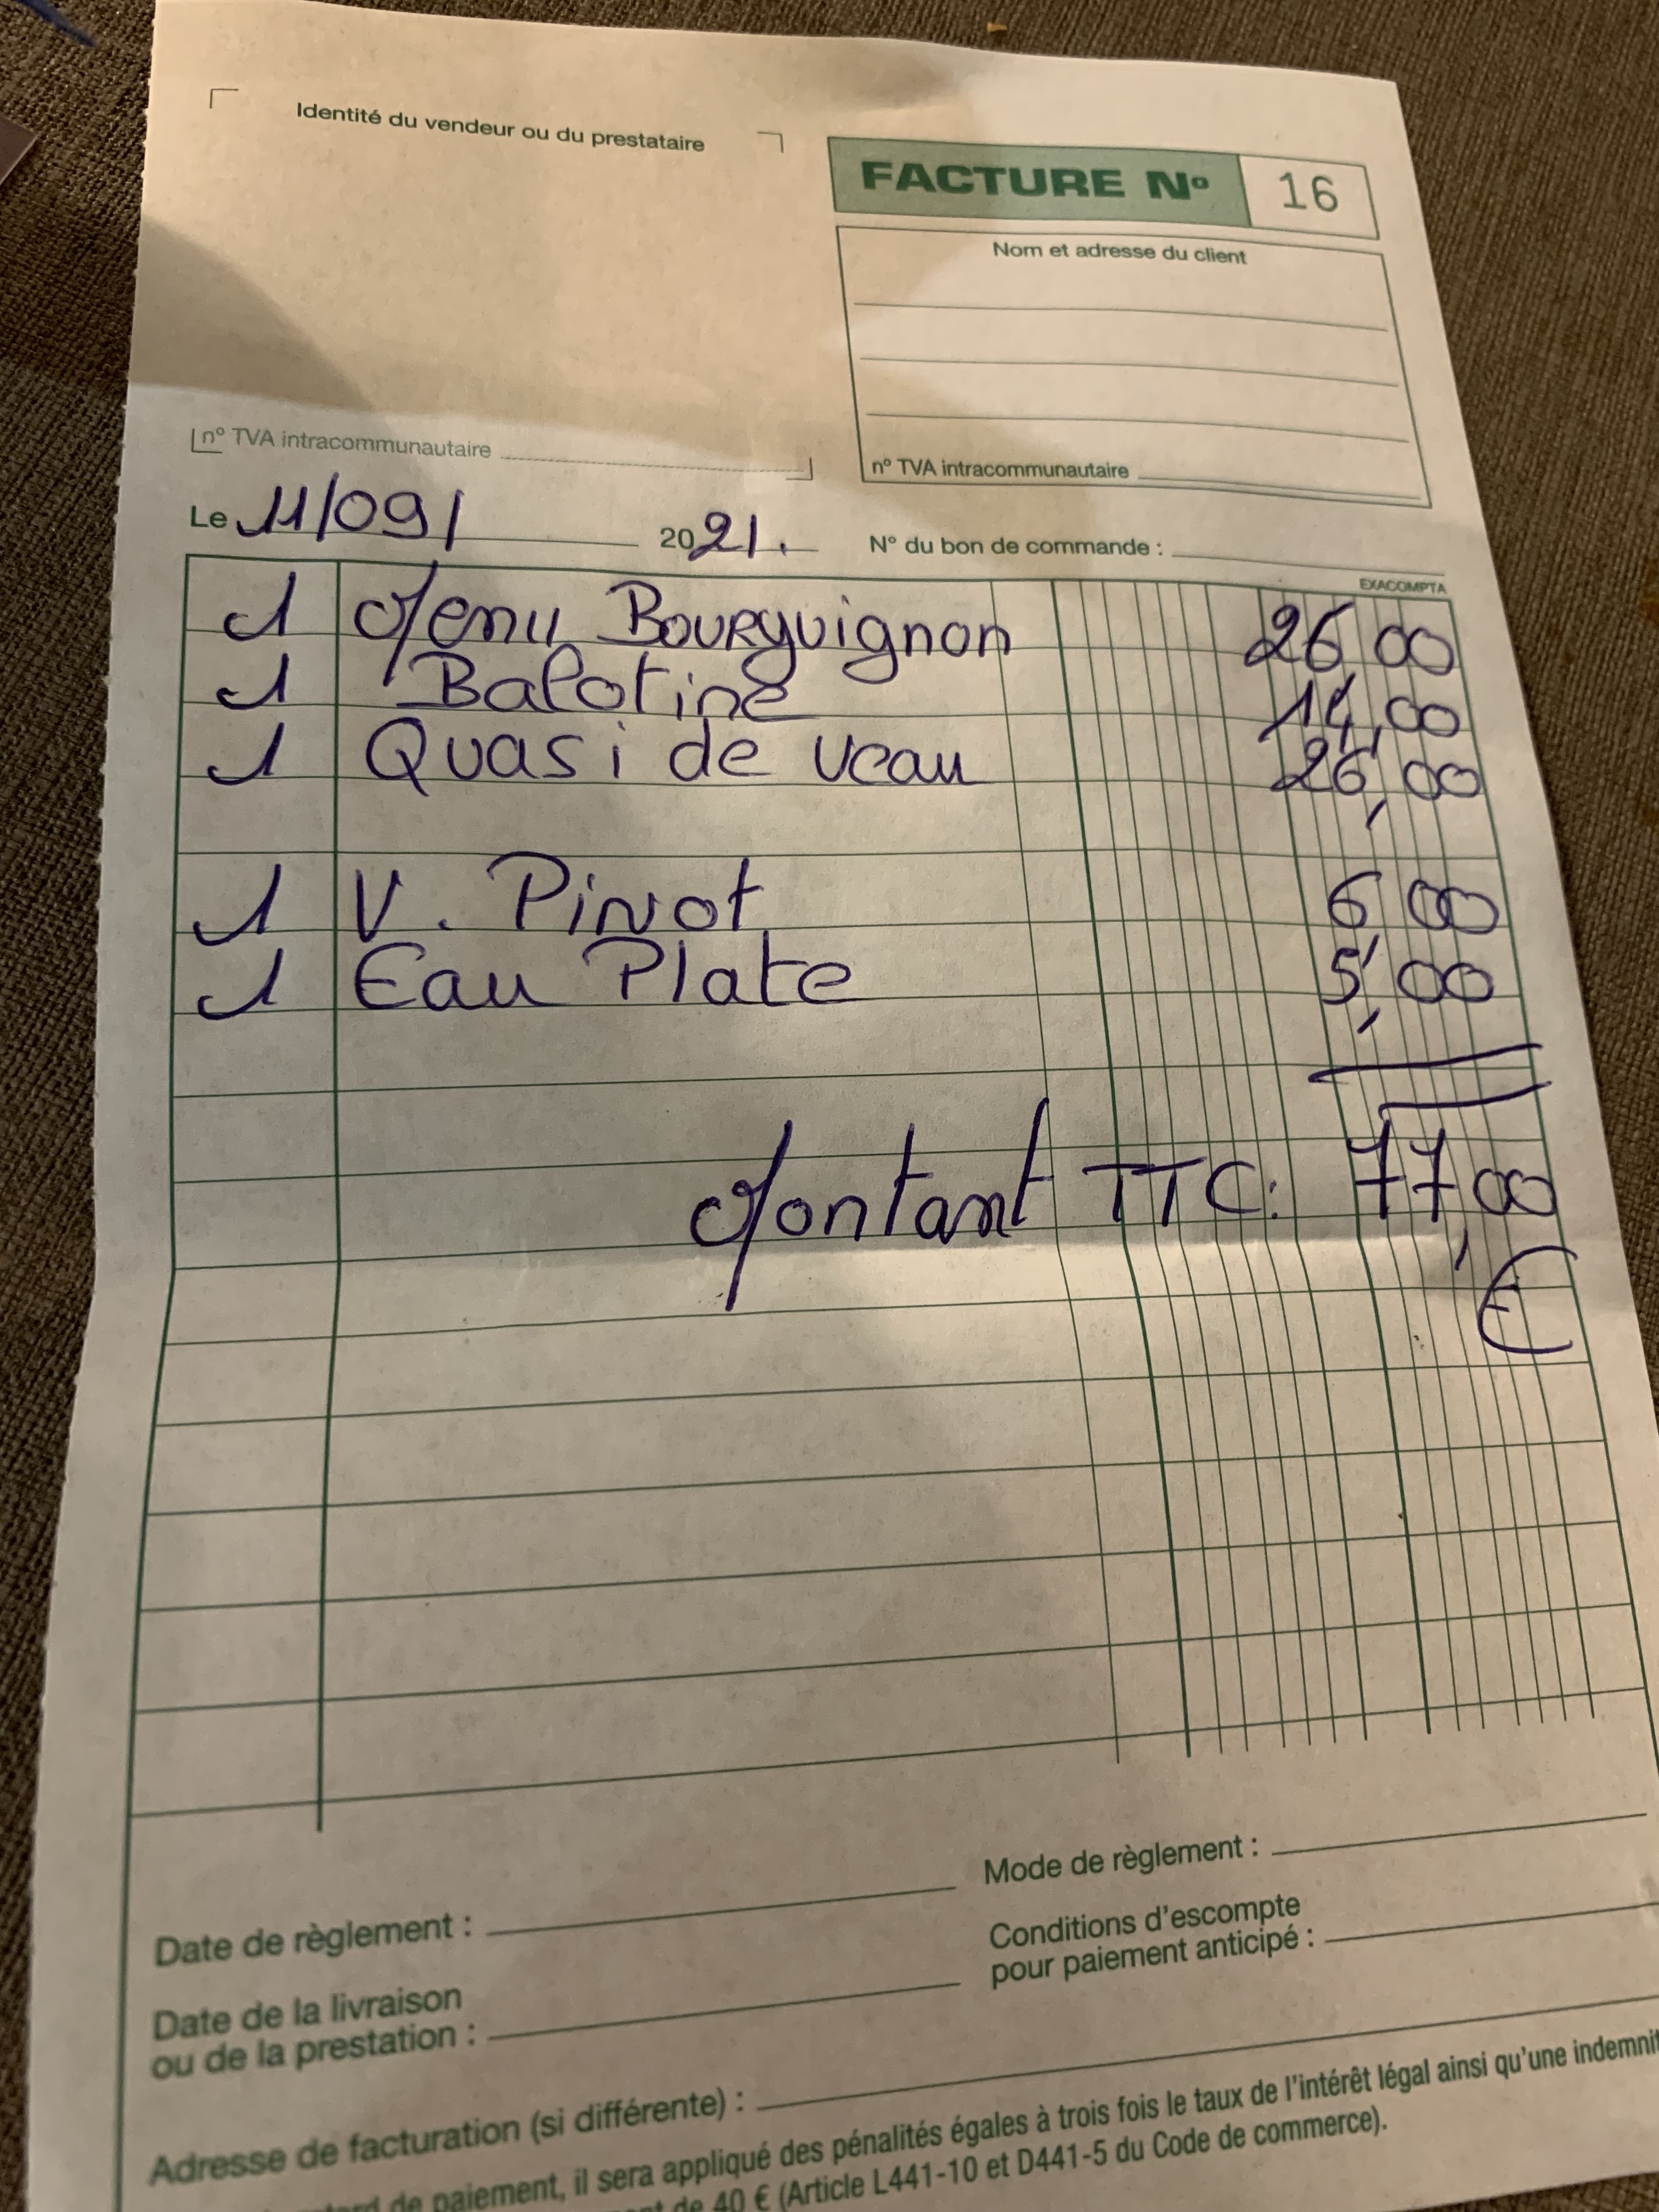 Identité du vendeur ou du prestataire
FACTURE Nº 16
Nom et adresse du client
nº TVA intracommunautaire
nº TVA intracommunautaire
Le 11/09/ 2021.
N° du bon de commande :
EXACOMPTA
1 Menu Bourguignon 26,00
1 Balotine 14,00
1 Quasi de veau 26,00
1 V. Pinot 6,00
1 Eau Plate 5,00
Montant TTC: 77,00
€
Date de règlement :
Mode de règlement :
Date de la livraison
ou de la prestation :
Conditions d'escompte
pour paiement anticipé :
Adresse de facturation (si différente) :
de paiement, il sera appliqué des pénalités égales à trois fois le taux de l'intérêt légal ainsi qu'une
de 40 € (Article L441-10 et D441-5 du Code de commerce).